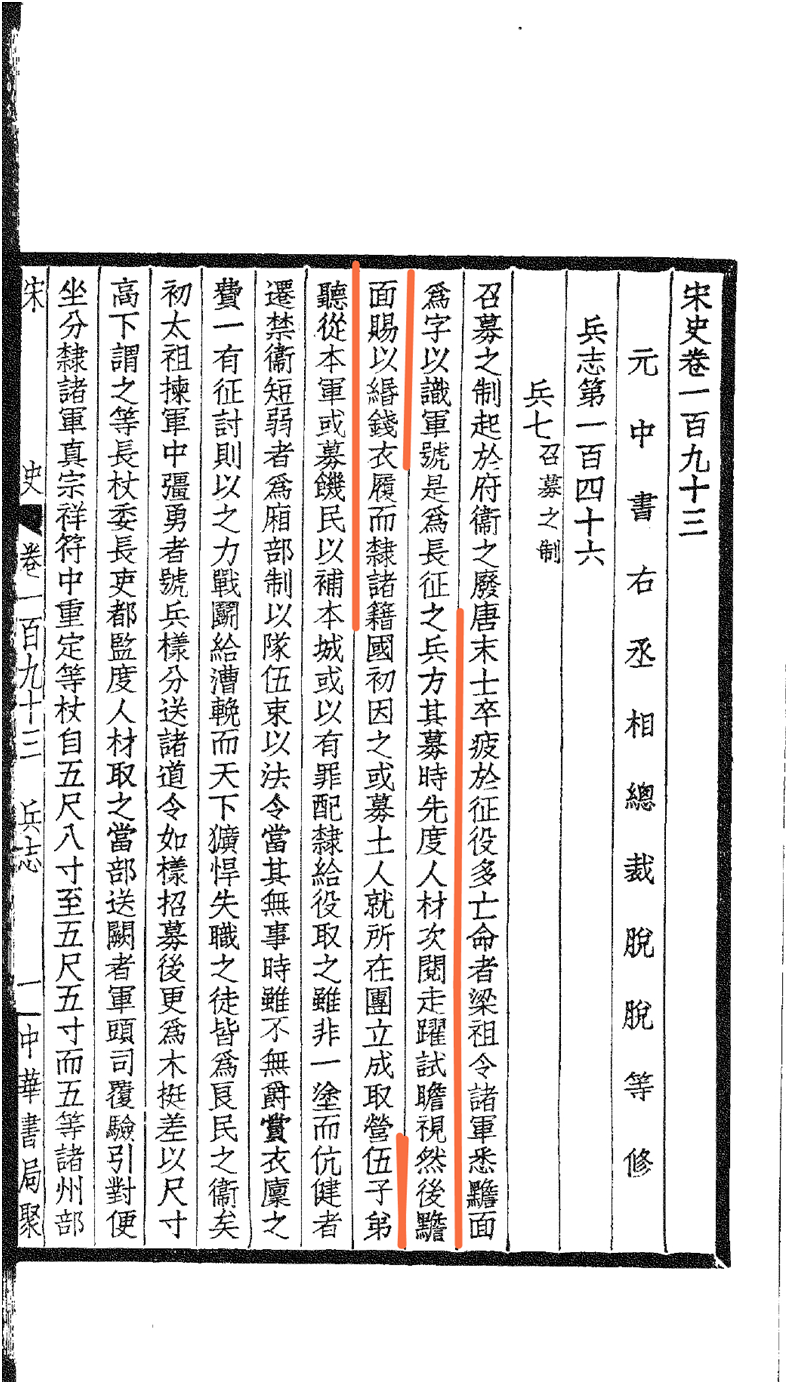 宋史卷一百九十三
元中書右丞相總裁脫脫等修
兵志第一百四十六
兵七召募之制
召募之制起於府衞之廢唐末士卒疲於征役多亡命者梁祖令諸軍悉黵面
爲字以識軍號是爲長征之兵方其募時先度人材次閱走躍試瞻視然後黵
面賜以緡錢衣履而隸諸籍國初因之或募土人就所在團立或取營伍子弟
聽從本軍或募饑民以補本城或以有罪配隸給役取之雖非一塗而伉健者
遷禁衞短弱者爲廂部制以隊伍束以法令當其無事時雖不無爵賞衣廩之
費一有征討則以之力戰鬬給漕輓而天下獷悍失職之徒皆爲良民之衞矣
初太祖揀軍中彊勇者號兵樣分送諸道令如樣招募後更爲木挺差以尺寸
高下謂之等長杖委長吏都監度人材取之當部送闕者軍頭司覆驗引對便
坐分隸諸軍真宗祥符中重定等杖自五尺八寸至五尺五寸而五等諸州部
宋史卷一百九十三 兵志 一 中華書局聚